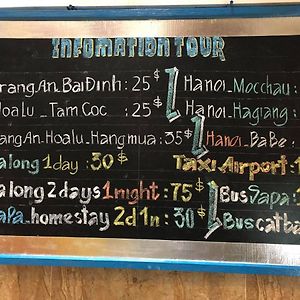 INFOMATION TOUR
rangAn BaiĐinh : 25$
Hoalu _ Tam Coc : 25$
angAn_Hoalu_Hangmua : 35$
along 1day : 30$
a long 2days 1night : 75$
apa_homestay 2d1n : 30$
Hanoi_Mocchau :
Hanoi_Hagiang :
Hanoi_BaBe :
Taxi Airport :
Bus Sapa :
Bus catba